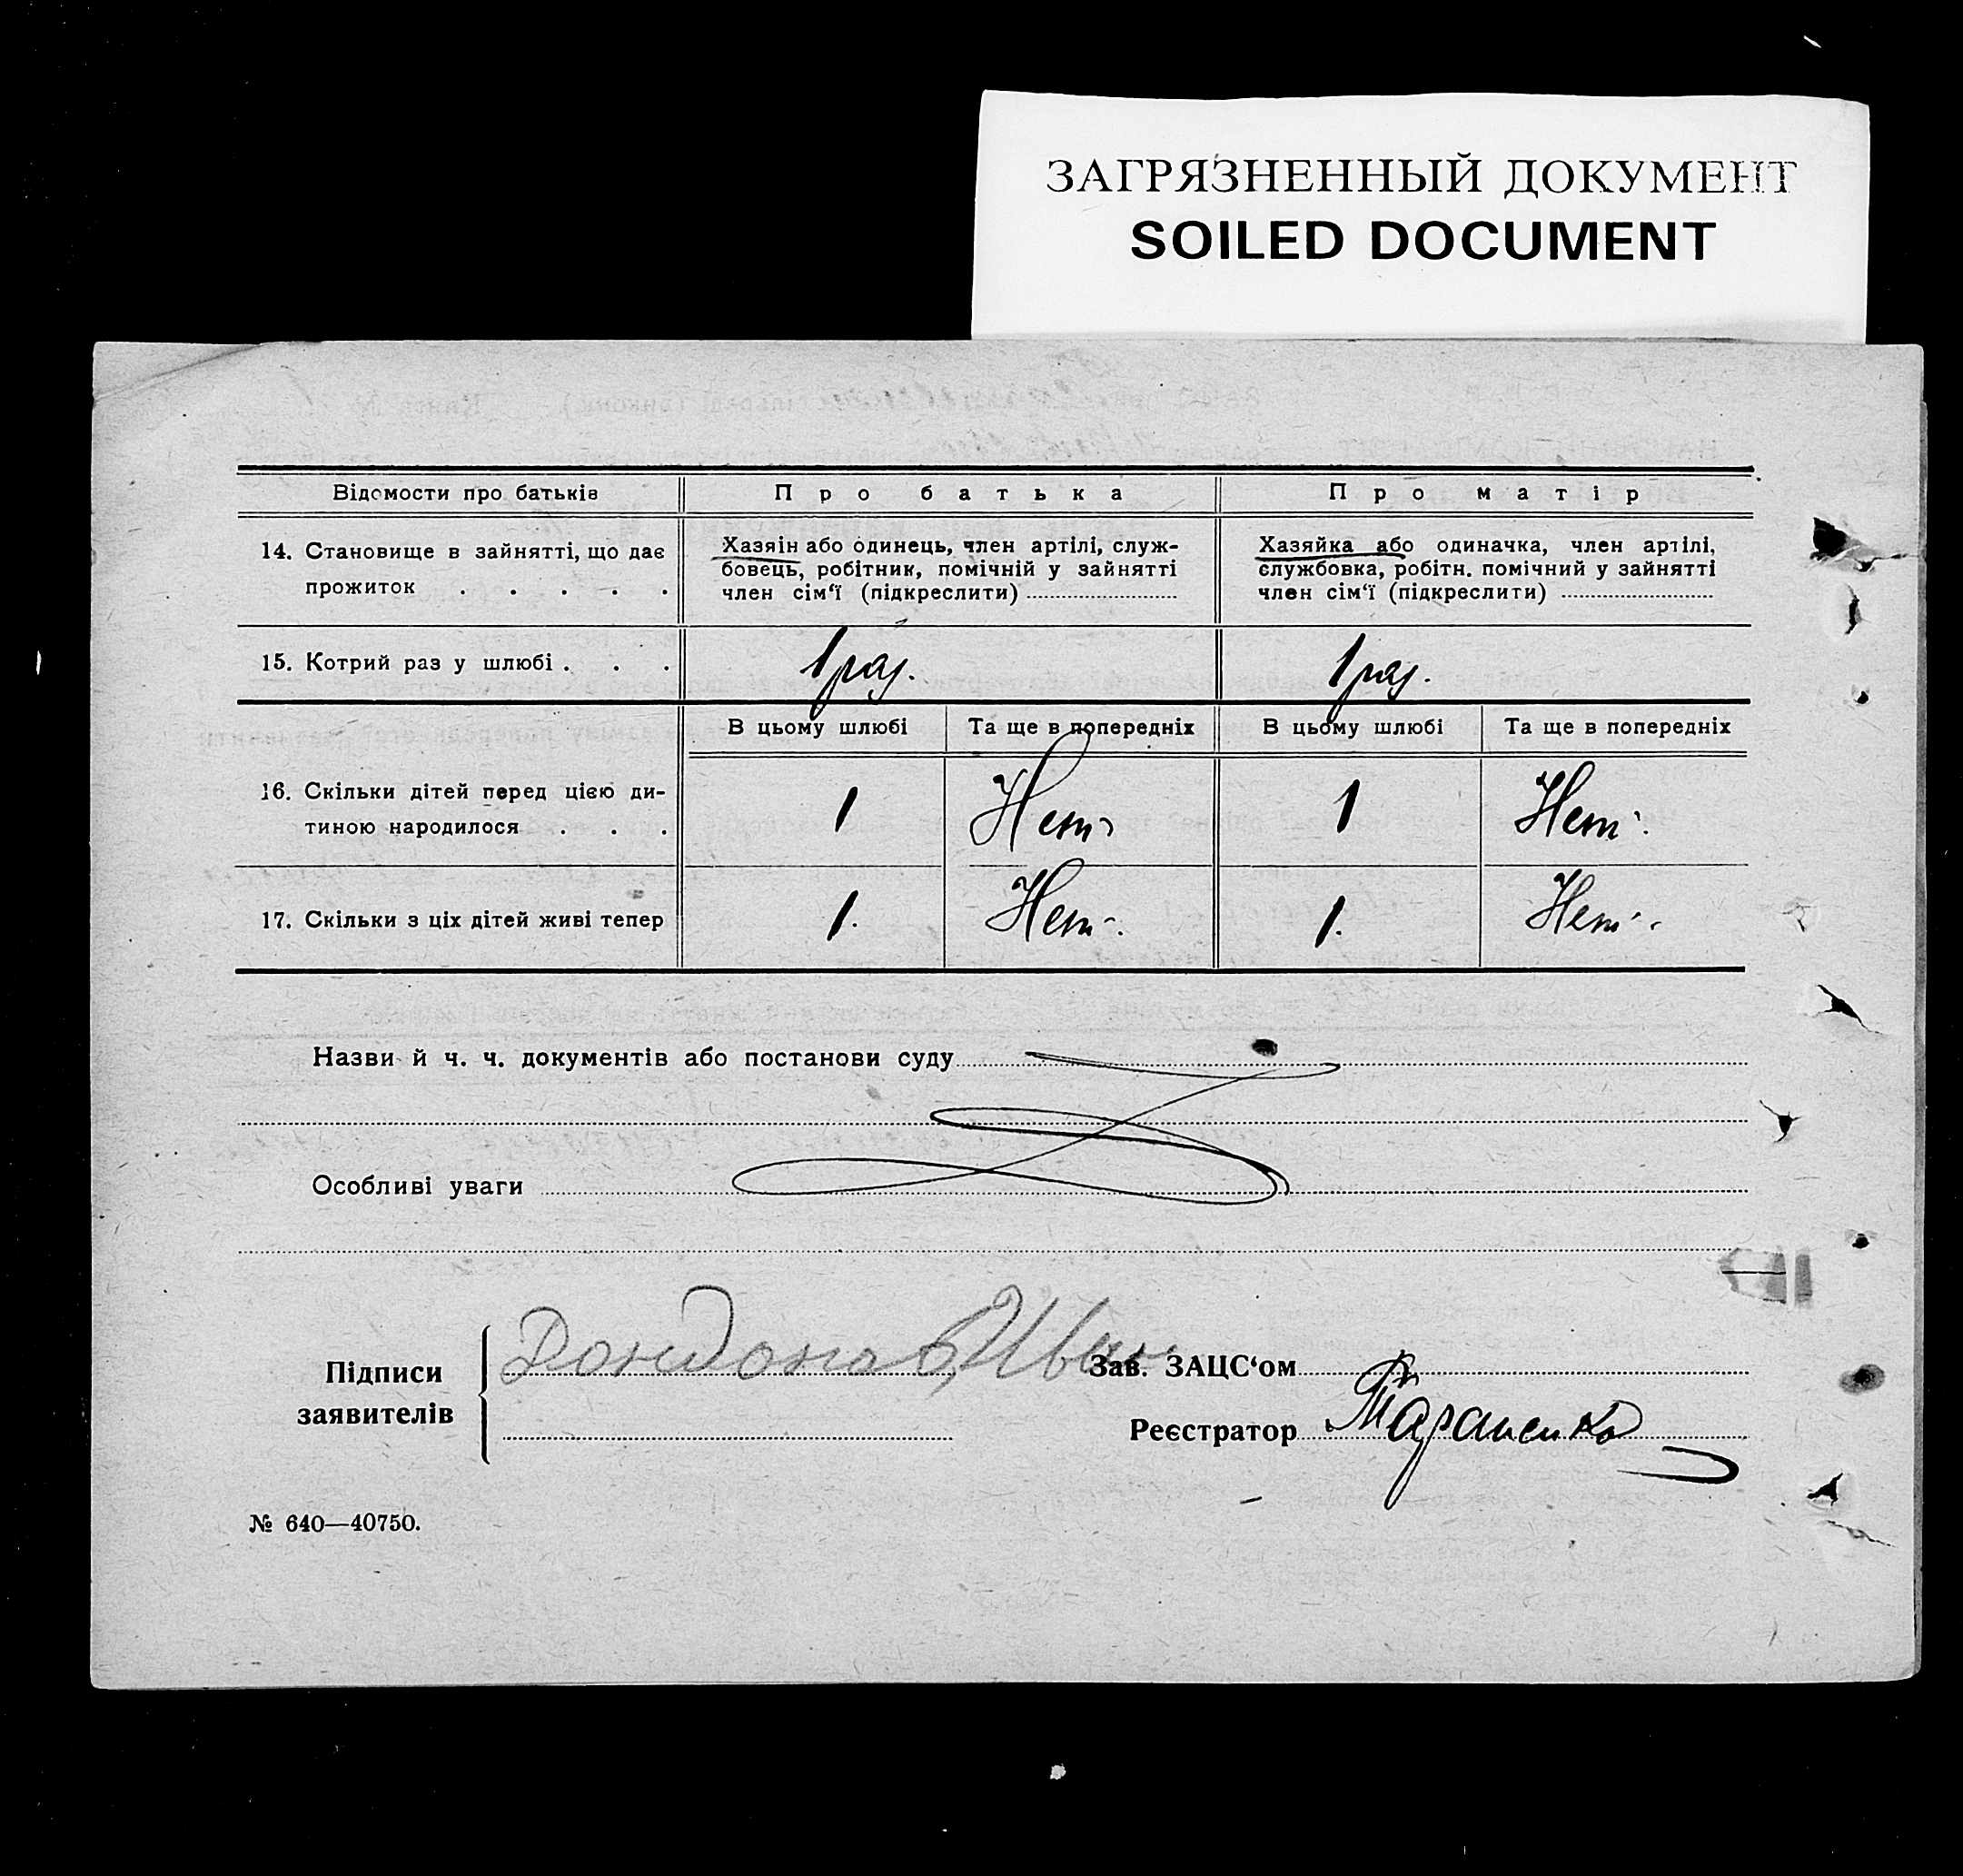 ЗАГРЯЗНЕННЫЙ ДОКУМЕНТ
SOILED DOCUMENT
Відомости про батьків Про батька Про матір
14. Становище в зайнятті, що дає прожиток . . . . .
Хазяін або одинець, член артілі, служ-
бовець, робітник, помічній у зайнятті
член сім‘ї (підкреслити)
Хазяйка або одиначка, член артілі,
службовка, робітн. помічний у зайнятті
член сім‘ї (підкреслити)
15. Котрий раз у шлюбі . . . 1 раз. 1 раз.
В цьому шлюбі Та ще в попередніх В цьому шлюбі Та ще в попередніх
16. Скільки дітей перед цією ди-
тиною народилося . . . 1 Нет 1 Нет.
17. Скільки з ціх дітей живі тепер 1. Нет. 1. Нет.
Назви й ч. ч. документів або постанови суду
Особливі уваги
Підписи
заявителів
Иван
Зав. ЗАЦС‘ом
Реєстратор Тараненко
№ 640—40750.